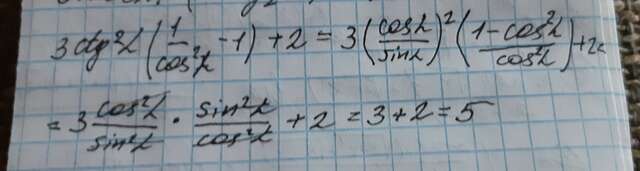 3 ctg²α (1/cos²α - 1) + 2 = 3 (cosα/sinα)² (1-cos²α/cos²α) + 2 =
= 3 cos²α/sin²α · sin²α/cos²α + 2 = 3 + 2 = 5